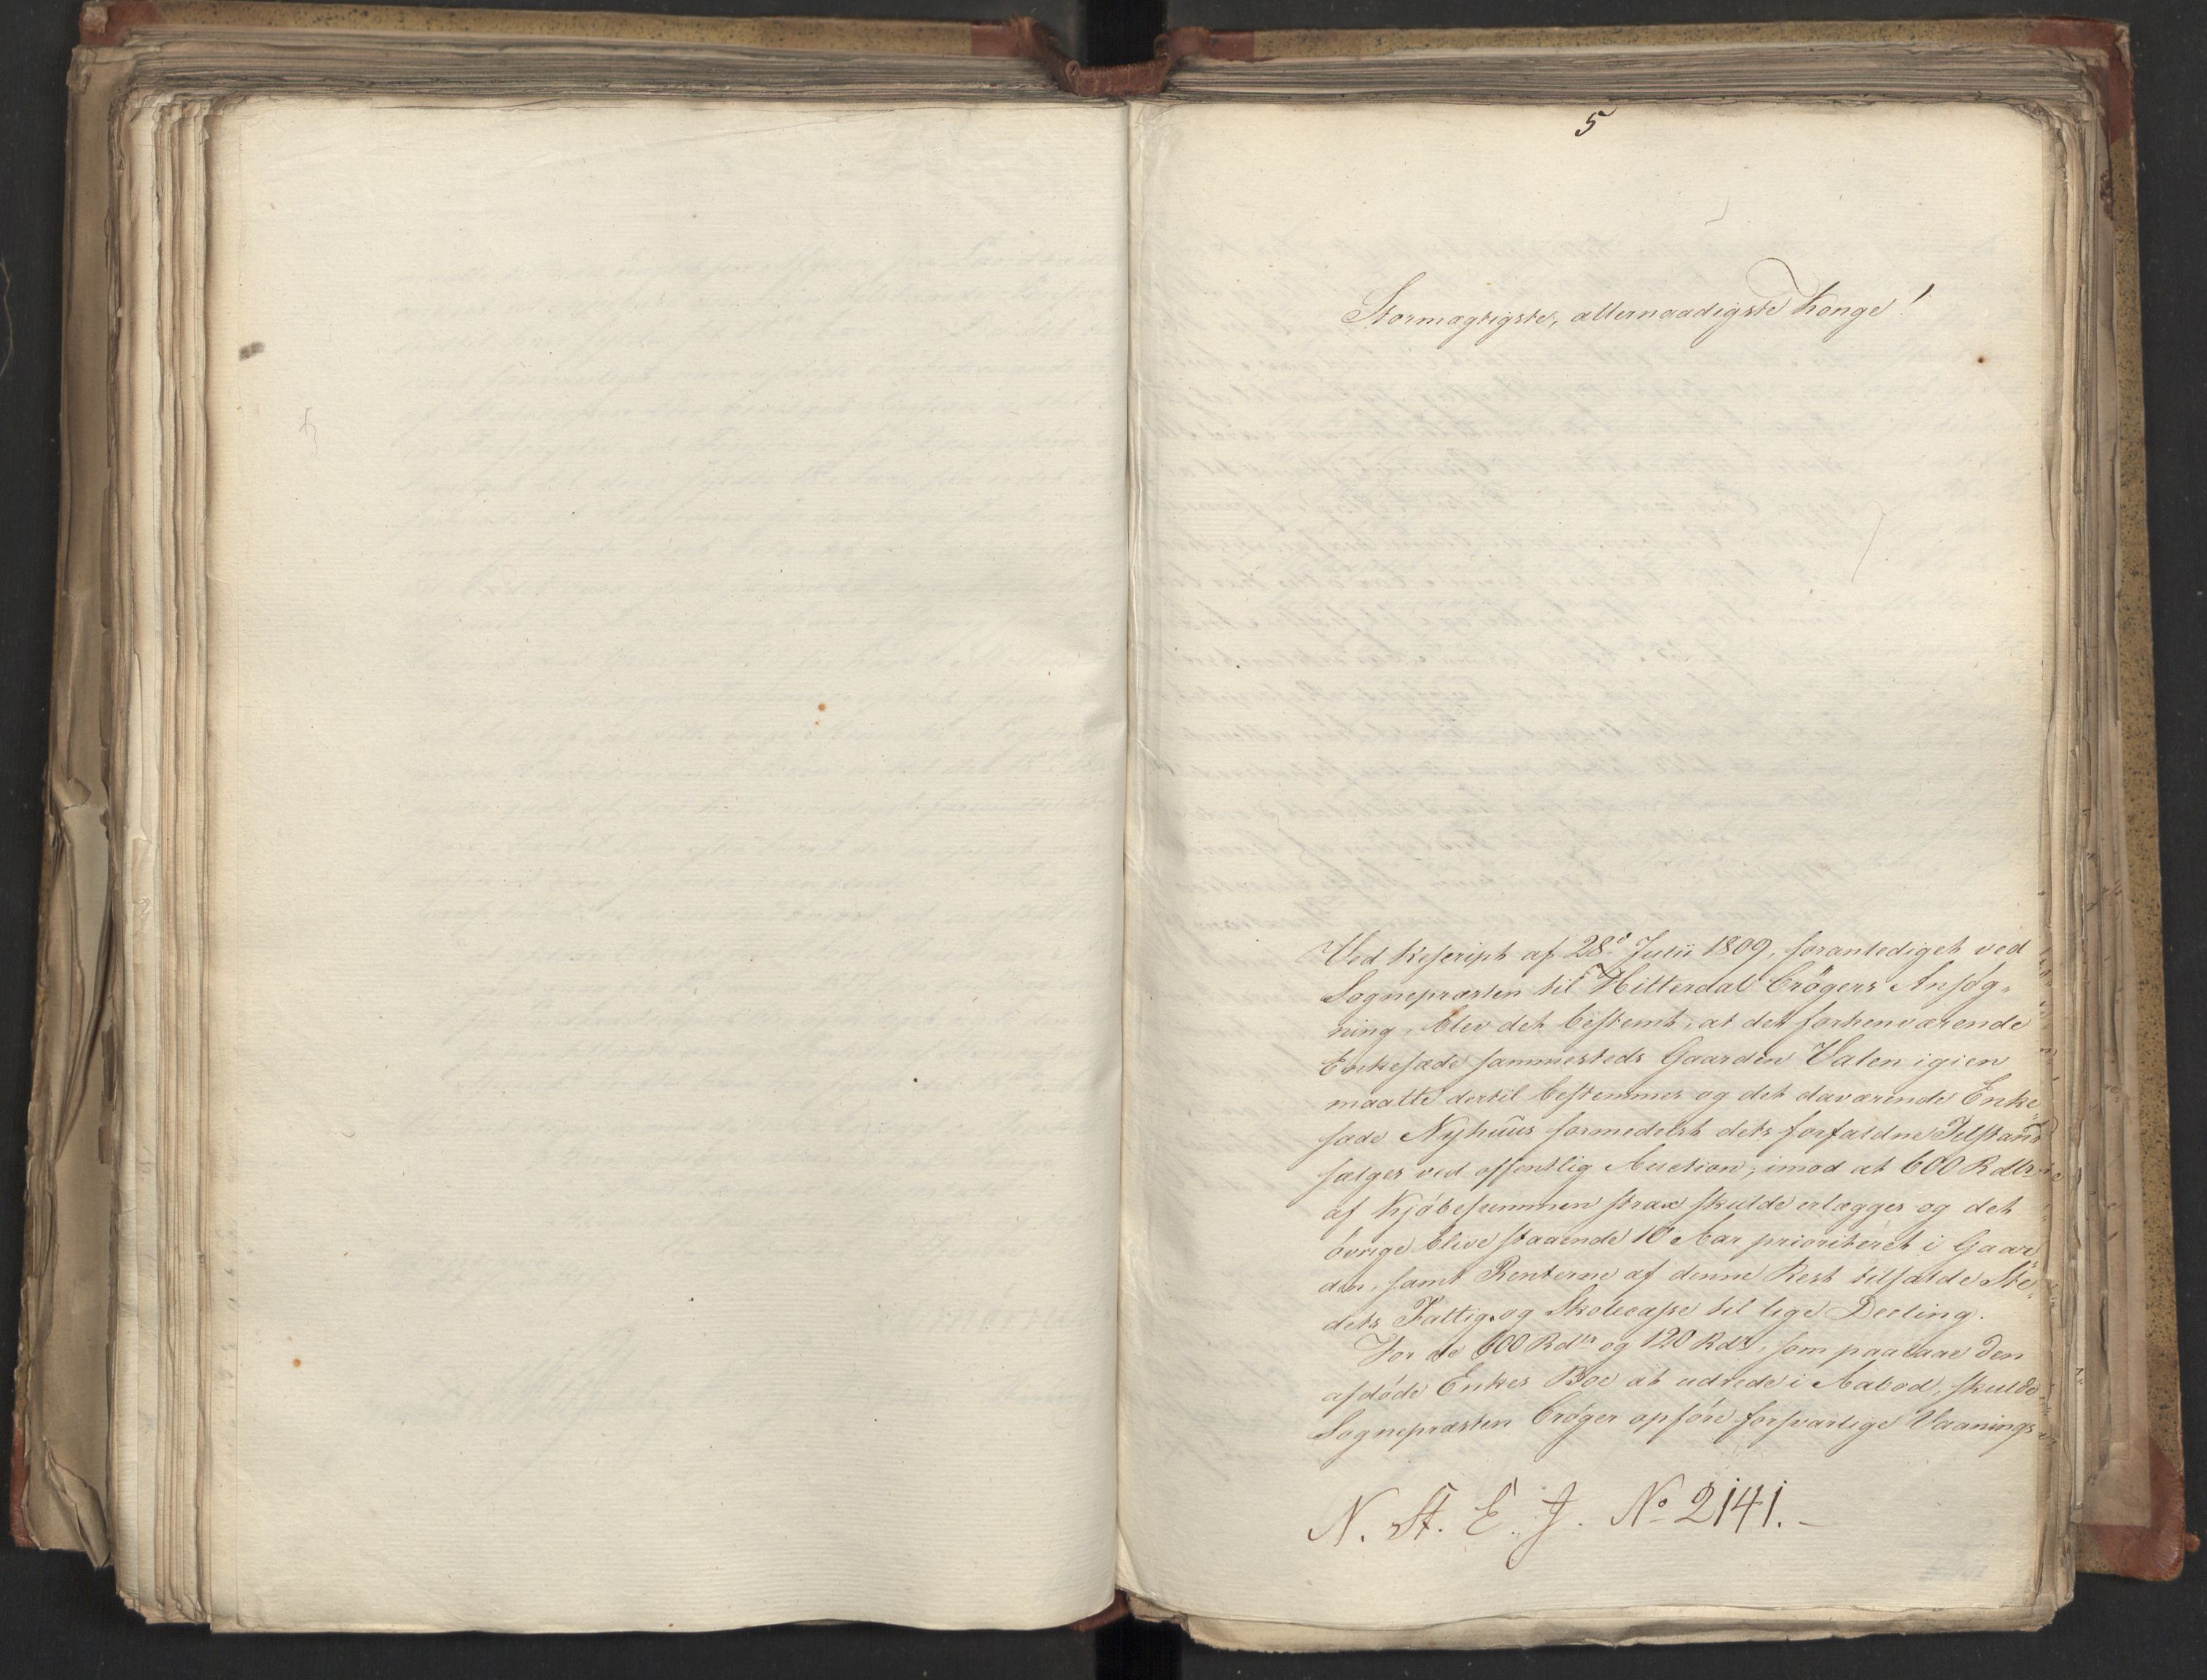 5
Stormægtigste, allernaadigste Konge!
Ved Rescript af 28de Julii 1809, foranlediget ved
Sognepræsten til Hitterdal Crøgers Ansøg-
ning, blev det bestemt, at det forhenværende
Enkesæde sammesteds Gaarden Valen igien
maatte dertil bestemmes og det daværende Enke-
sæde Nyhuus formedelst dets forfaldne Tilstand
sælges ved offentlig Auction, imod at 600 Rdlr
af Kjøbesummen strax skulde erlægges og det
øvrige blive staaende 10 Aar prioriteret i Gaar-
den, samt Renterne af denne Rest tilfalde Ste-
dets Fattig- og Skolecasse til lige Deeling.
For de 600 Rdlr og 120 Rdlr, som paalaae den
afdøde Enkes Boe at udrede i Aabod, skulde
Sognepræsten Crøger opføre forsvarlige Vaanings-
N. St. E. J. No 2141.-